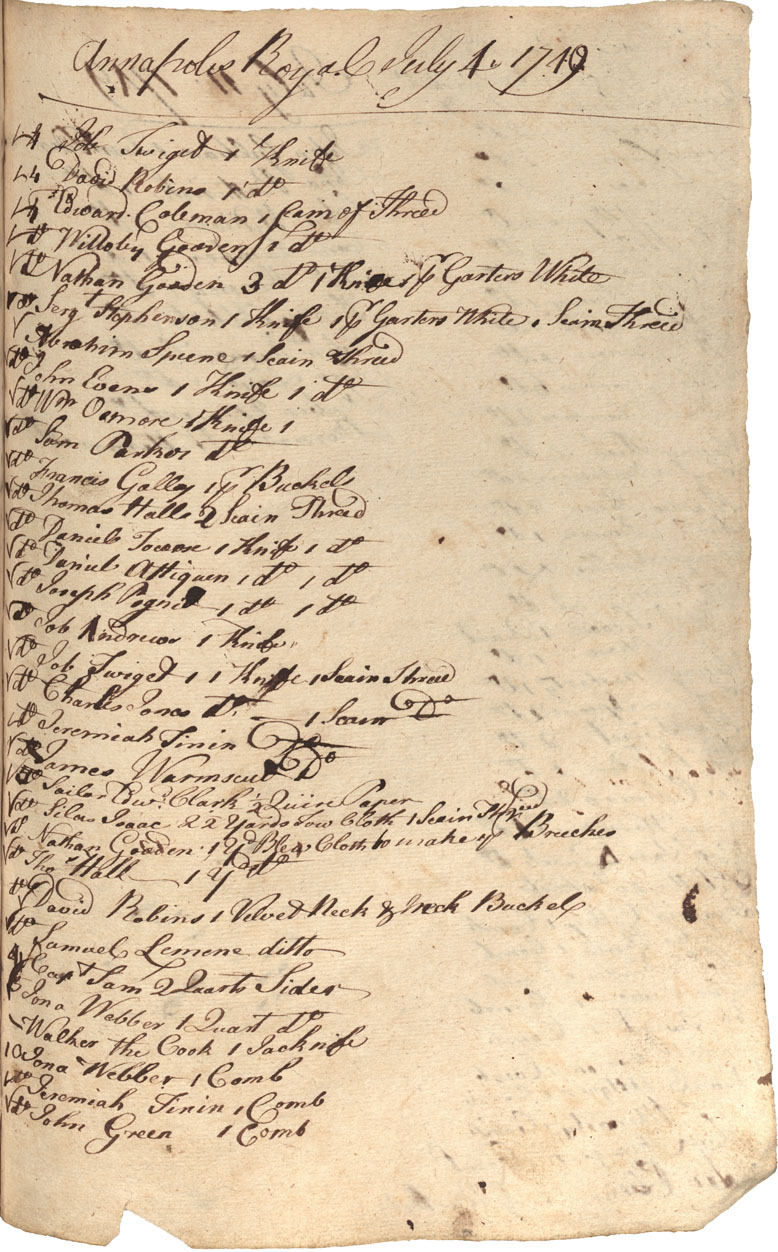 Annapolis Royal July 4 1749
4 Job Twiget 1 Knife
4 David Robins 1 do
4 Edward Coleman 1 Scain of Threed
do Willoby Gooden 1 do
do Nathan Gooden 3 do 1 Knife 1 pr Garters White
do Sergt Stephenson 1 Knife 1 pr Garters White 1 Scain Threed
Abrahim Spene 1 Scain Threed
do John Evens 1 Knife 1 do
do Wm Oamore 1 Knife 1
do Sam Parker do
do Francis Golley 1 pr Buckels
do Thomas Halls 2 Scain Threed
do Daniel 1 Knife 1 do
do Daniel Attiquen 1 do 1 do
do Joseph Pognit 1 do 1 do
do Job Andrews 1 Knife
do Job Twiget 1 1 Knife 1 Scain Threed
do Charles Jones do 1 Scain Do
do Jeremiah Finin Do
do James Warmscut Do
do Sailor Edwd Clark 1/2 Quire Paper
do Silas Isaac 2 2 Yards Tow Cloth 1 Scain Threed
do Nathan Gooden 1 Yd Blew Cloth to make pr Breches
do Thos Hall 1 Yd do
do David Robins 1 Velvet Neck & Neck Buckel
do Samuel Lemene ditto
Capt Sam 2 Quarts Sider
Jona Webber 1 Quart do
Walker the Cook 1 Jacknife
10 Jona Webber 1 Comb
do Jeremiah Finin 1 Comb
do John Green 1 Comb